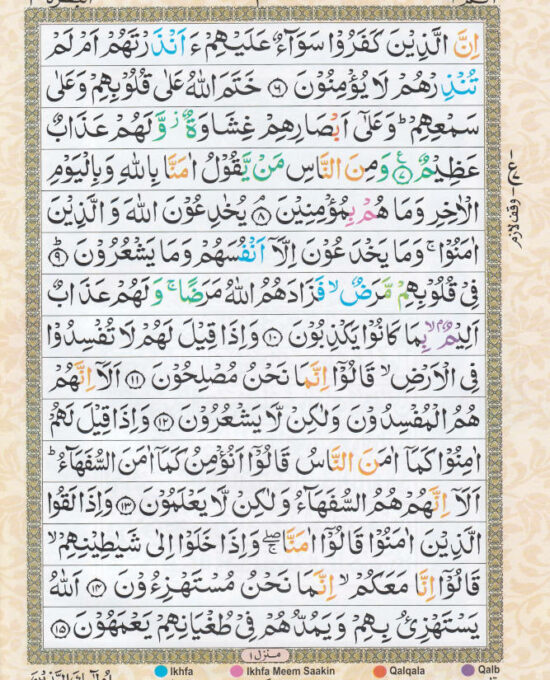 اِنَّ الَّذِيْنَ كَفَرُوْا سَوَآءٌ عَلَيْهِمْ ءَاَنْذَرْتَهُمْ اَمْ لَمْ
تُنْذِرْهُمْ لَا يُؤْمِنُوْنَ ۞٦ خَتَمَ اللّٰهُ عَلٰى قُلُوْبِهِمْ وَعَلٰى
سَمْعِهِمْ ؕ وَعَلٰٓى اَبْصَارِهِمْ غِشَاوَةٌ ز وَّلَهُمْ عَذَابٌ
عَظِيْمٌ ۞٧ وَمِنَ النَّاسِ مَنْ يَّقُوْلُ اٰمَنَّا بِاللّٰهِ وَبِالْيَوْمِ
الْاٰخِرِ وَمَا هُمْ بِمُؤْمِنِيْنَ ۞٨ يُخٰدِعُوْنَ اللّٰهَ وَالَّذِيْنَ
اٰمَنُوْا ۚ وَمَا يَخْدَعُوْنَ اِلَّآ اَنْفُسَهُمْ وَمَا يَشْعُرُوْنَ ۞٩ؕ
فِيْ قُلُوْبِهِمْ مَّرَضٌ ۙ فَزَادَهُمُ اللّٰهُ مَرَضًا ۚ وَلَهُمْ عَذَابٌ
اَلِيْمٌۢ ۙ بِمَا كَانُوْا يَكْذِبُوْنَ ۞١٠ وَاِذَا قِيْلَ لَهُمْ لَا تُفْسِدُوْا
فِى الْاَرْضِ ۙ قَالُوْٓا اِنَّمَا نَحْنُ مُصْلِحُوْنَ ۞١١ اَلَآ اِنَّهُمْ
هُمُ الْمُفْسِدُوْنَ وَلٰكِنْ لَّا يَشْعُرُوْنَ ۞١٢ وَاِذَا قِيْلَ لَهُمْ
اٰمِنُوْا كَمَآ اٰمَنَ النَّاسُ قَالُوْٓا اَنُؤْمِنُ كَمَآ اٰمَنَ السُّفَهَآءُ ؕ
اَلَآ اِنَّهُمْ هُمُ السُّفَهَآءُ وَلٰكِنْ لَّا يَعْلَمُوْنَ ۞١٣ وَاِذَا لَقُوا
الَّذِيْنَ اٰمَنُوْا قَالُوْٓا اٰمَنَّا ۖۚ وَاِذَا خَلَوْا اِلٰى شَيٰطِيْنِهِمْ ۙ
قَالُوْٓا اِنَّا مَعَكُمْ ۙ اِنَّمَا نَحْنُ مُسْتَهْزِءُوْنَ ۞١٤ اَللّٰهُ
يَسْتَهْزِئُ بِهِمْ وَيَمُدُّهُمْ فِيْ طُغْيَانِهِمْ يَعْمَهُوْنَ ۞١٥
وقف لازم
منزل ١
Ikhfa Ikhfa Meem Saakin Qalqala Qalb